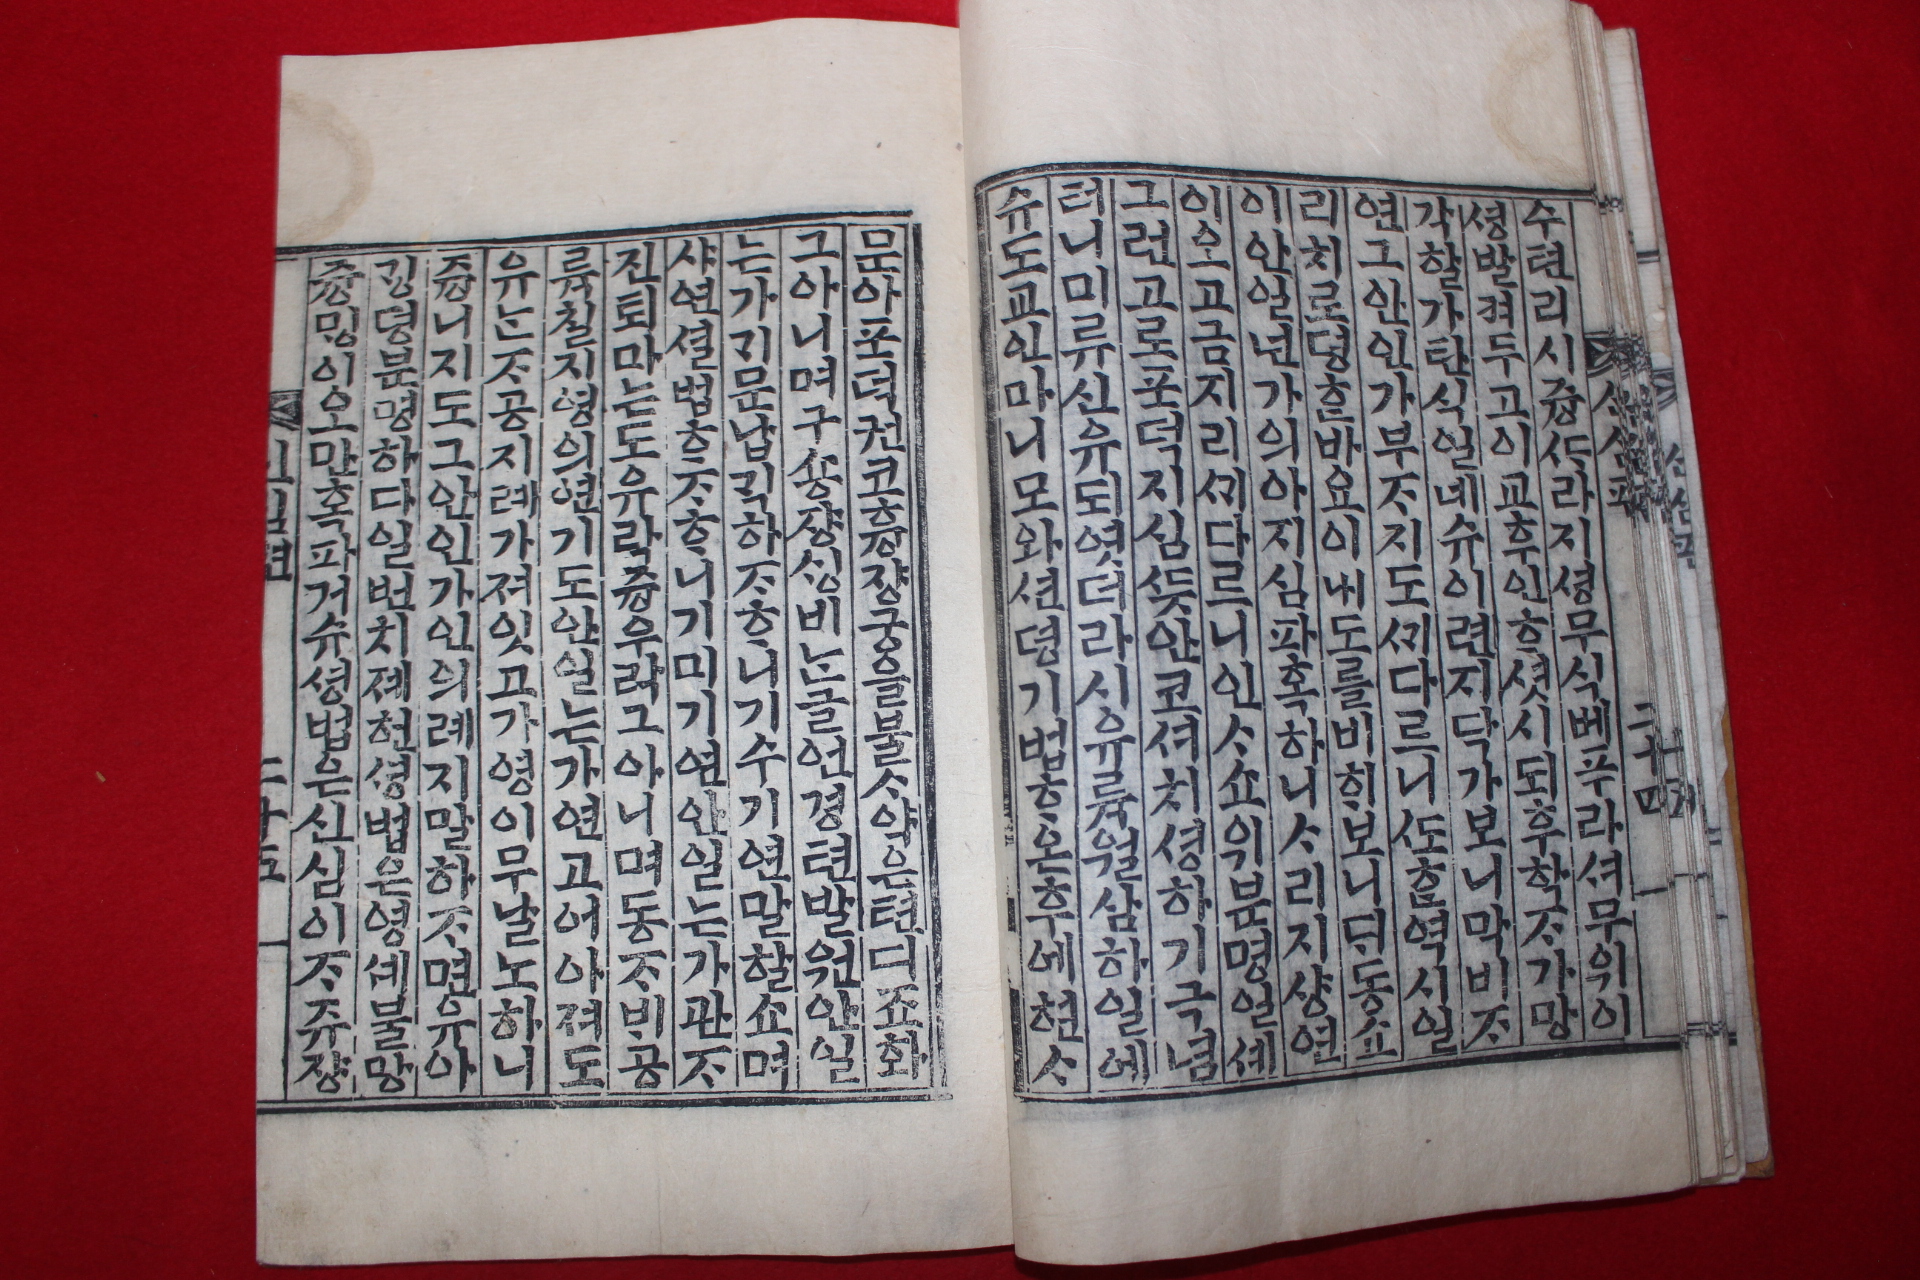 신심편 二十四
수텬리시즁ᄯᅩ라지셩무식베푸라셔무위이
셩발켜두고이교후인ᄒᆞ셧시되후학ᄌᆞ가망
각할가탄식일네슈이련지닥가보니막비ᄌᆞ
연그안인가부ᄌᆞ지도ᄭᅵ다르니ᄯᅩᄒᆞᆷ역시일
리치로뎡ᄒᆞᆫ바요이ᄂᆡ도를비ᄒᆡ보니ᄃᆡ동쇼
이안일년가의아지심파혹하니ᄉᆞ리지샹연
이오고금지리ᄭᅵ다르니인ᄉᆞ쇼위분명일셰
그런고로포덕지심ᄯᅳᆺ안코셔치셩하기구념
터니미류신유되엿더라시유륙월삼하일에
슈도교인마니모와션뎡기범ᄒᆞ온후에현ᄉᆞ
문아포덕권코흥쟝궁을불ᄉᆞ약은텬디죠화
그아니며구숑쟝셩비ᄂᆞᆫ글언경텬발원안일
는가기문납긱하ᄌᆞᄒᆞ니기수기연말할쇼며
샤연셜법ᄒᆞᄌᆞᄒᆞ니기미기연안일는가관ᄌᆞ
진퇴마는도유락즁우락그아니며동ᄌᆞ비공
륙칠지영의연기도안일는가연고어아져도
유ᄂᆞᆫᄌᆞ공지례가져잇고가영이무날노하니
즁니지도그안인가인의례지말하ᄌᆞ면유아
깅뎡분명하다일번치졔현셩법은영셰불망
즁밍이오만혹파거슈셩법은신심이ᄌᆞ쥬쟝
신심편 二十五